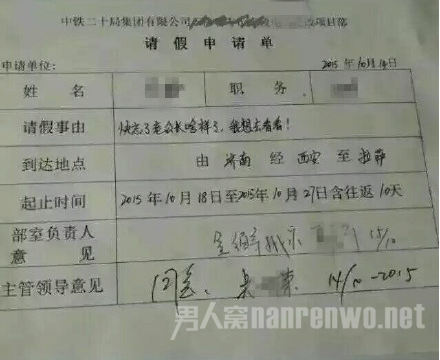 中铁二十局集团有限公司 项目部
请假申请单
申请单位: 2015年10月14日
姓名 职务
请假事由 快忘了老公长啥样了,我想去看看!
到达地点 由 济南 经 西安 至 拉萨
起止时间 2015年10月18日至2015年10月27日含往返10天
部室负责人
意见 15/10
主管领导意见 同意 14/10-2015
男人窝nanrenwo.net